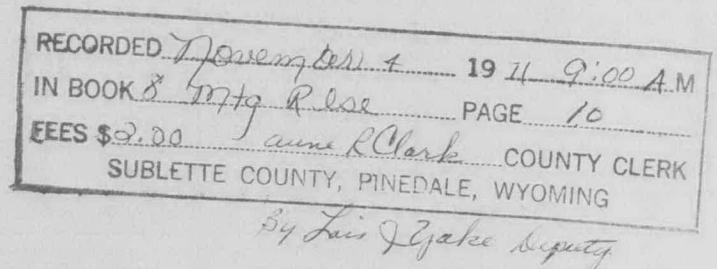 RECORDED November 4 1971 9:00 A.M
IN BOOK 8 Mtg Rlse PAGE 10
FEES $2.00 R Clark COUNTY CLERK
SUBLETTE COUNTY, PINEDALE, WYOMING
By Lois J Deputy